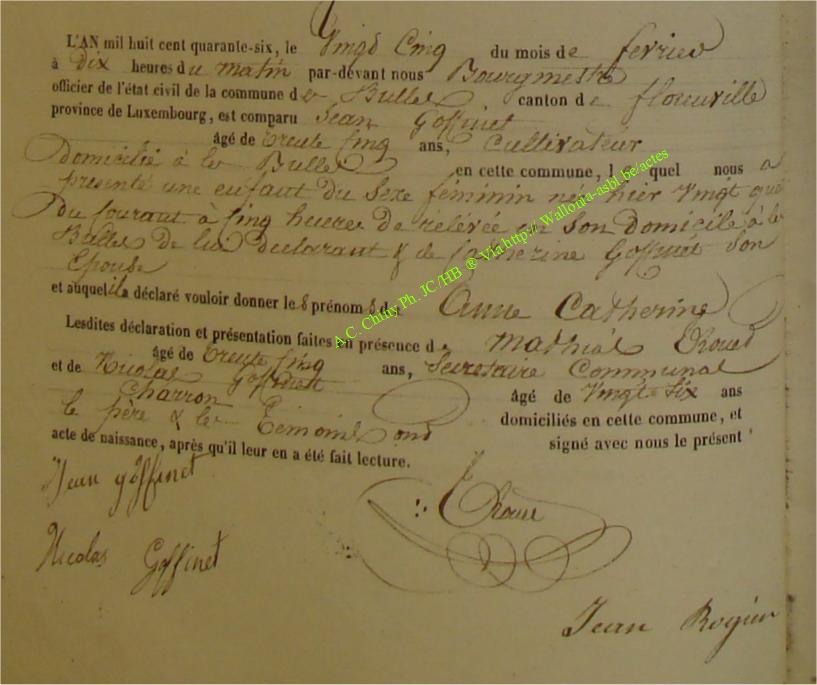 L'AN mil huit cent quarante-six, le Vingt Cinq du mois de fevrier
à Dix heures du matin par-devant nous Bourgmestre
officier de l'état civil de la commune de Bulles canton de florenville
province de Luxembourg, est comparu Jean Goffinet
âgé de trente Cinq ans, Cultivateur
Domicilié à les Bulles en cette commune, le quel nous a
présenté une enfant du Sexe féminin née hier Vingt quatre
Du Courant à Cinq heures de relevée en Son Domicile à les
Bulles de lui declarant & de Catherine Goffinet Son
Epouse
et auquel il a déclaré vouloir donner les prénoms de Anne Catherine
Lesdites déclaration et présentation faites en présence de Mathias
âgé de trente Cinq ans, Secretaire Communal
et de Nicolas Goffinet âgé de Vingt Six ans
Charron domiciliés en cette commune, et
le père & les Témoins ont signé avec nous le présent
acte de naissance, après qu'il leur en a été fait lecture.
Jean goffinet
Nicolas Goffinet
Jean Rogier
A.C. Chiny Ph. JC/HB ® Via http:// Wallonia-asbl.be/actes